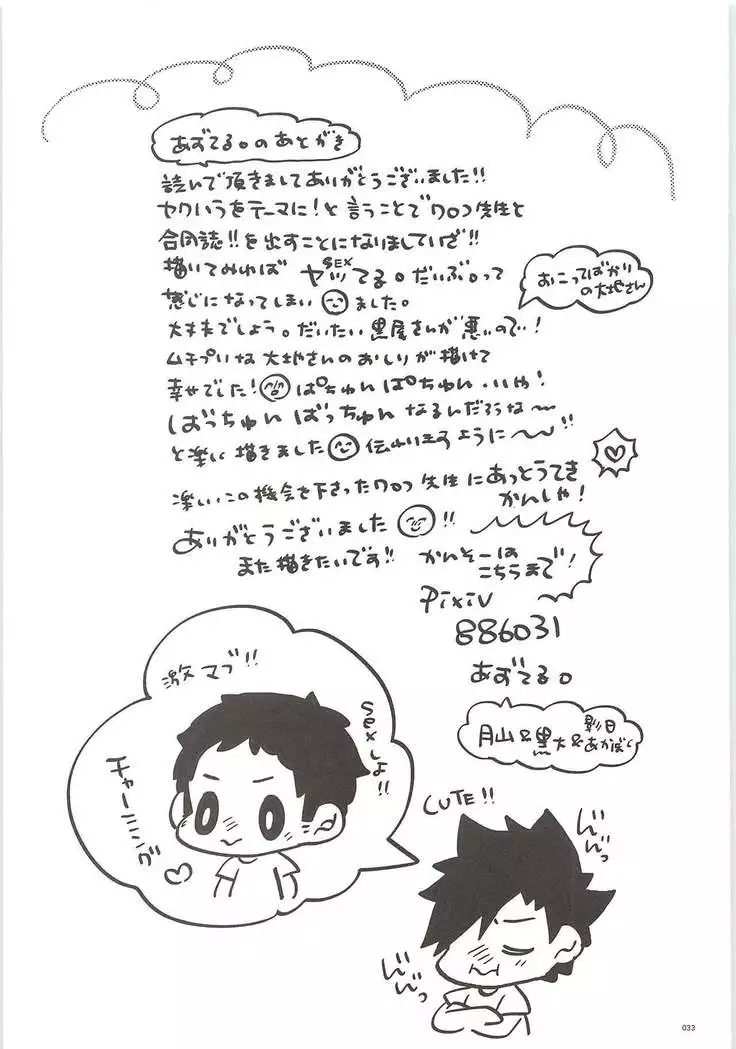 あずてる。のあとがき
読んで頂きましてありがとうございました!!
ヤクいうをテーマに!と言うことでクロつ先生と
合同誌!!を出すことになりまして いざ!!
描いてみれば ヤッてる。だいぶ。って
SEX
感じになってしまいました。
おこってばかり
の大地さん
大丈夫でしょう。だいたい黒尾さんが悪いので!
ムチプリな大地さんのおしりが描けて
幸せでした! ぱちゅんぱちゅん・いや!
ばっちゅん ばっちゅん なるんだろうな〜
と楽しい描きました 伝わりますように〜!!
楽しいこの機会を下さったクロつ先生にあっとうてき
かんしゃ!
ありがとうございました!!
また描きたいです!!
かんそーは
こちらまで!
Pixiv
886031
あずてる。
月山&黒大&影日
&あかぼく
激マブ!!
sexしよ!!
チャーミング
CUTE!!
んんっ
んんっ
033